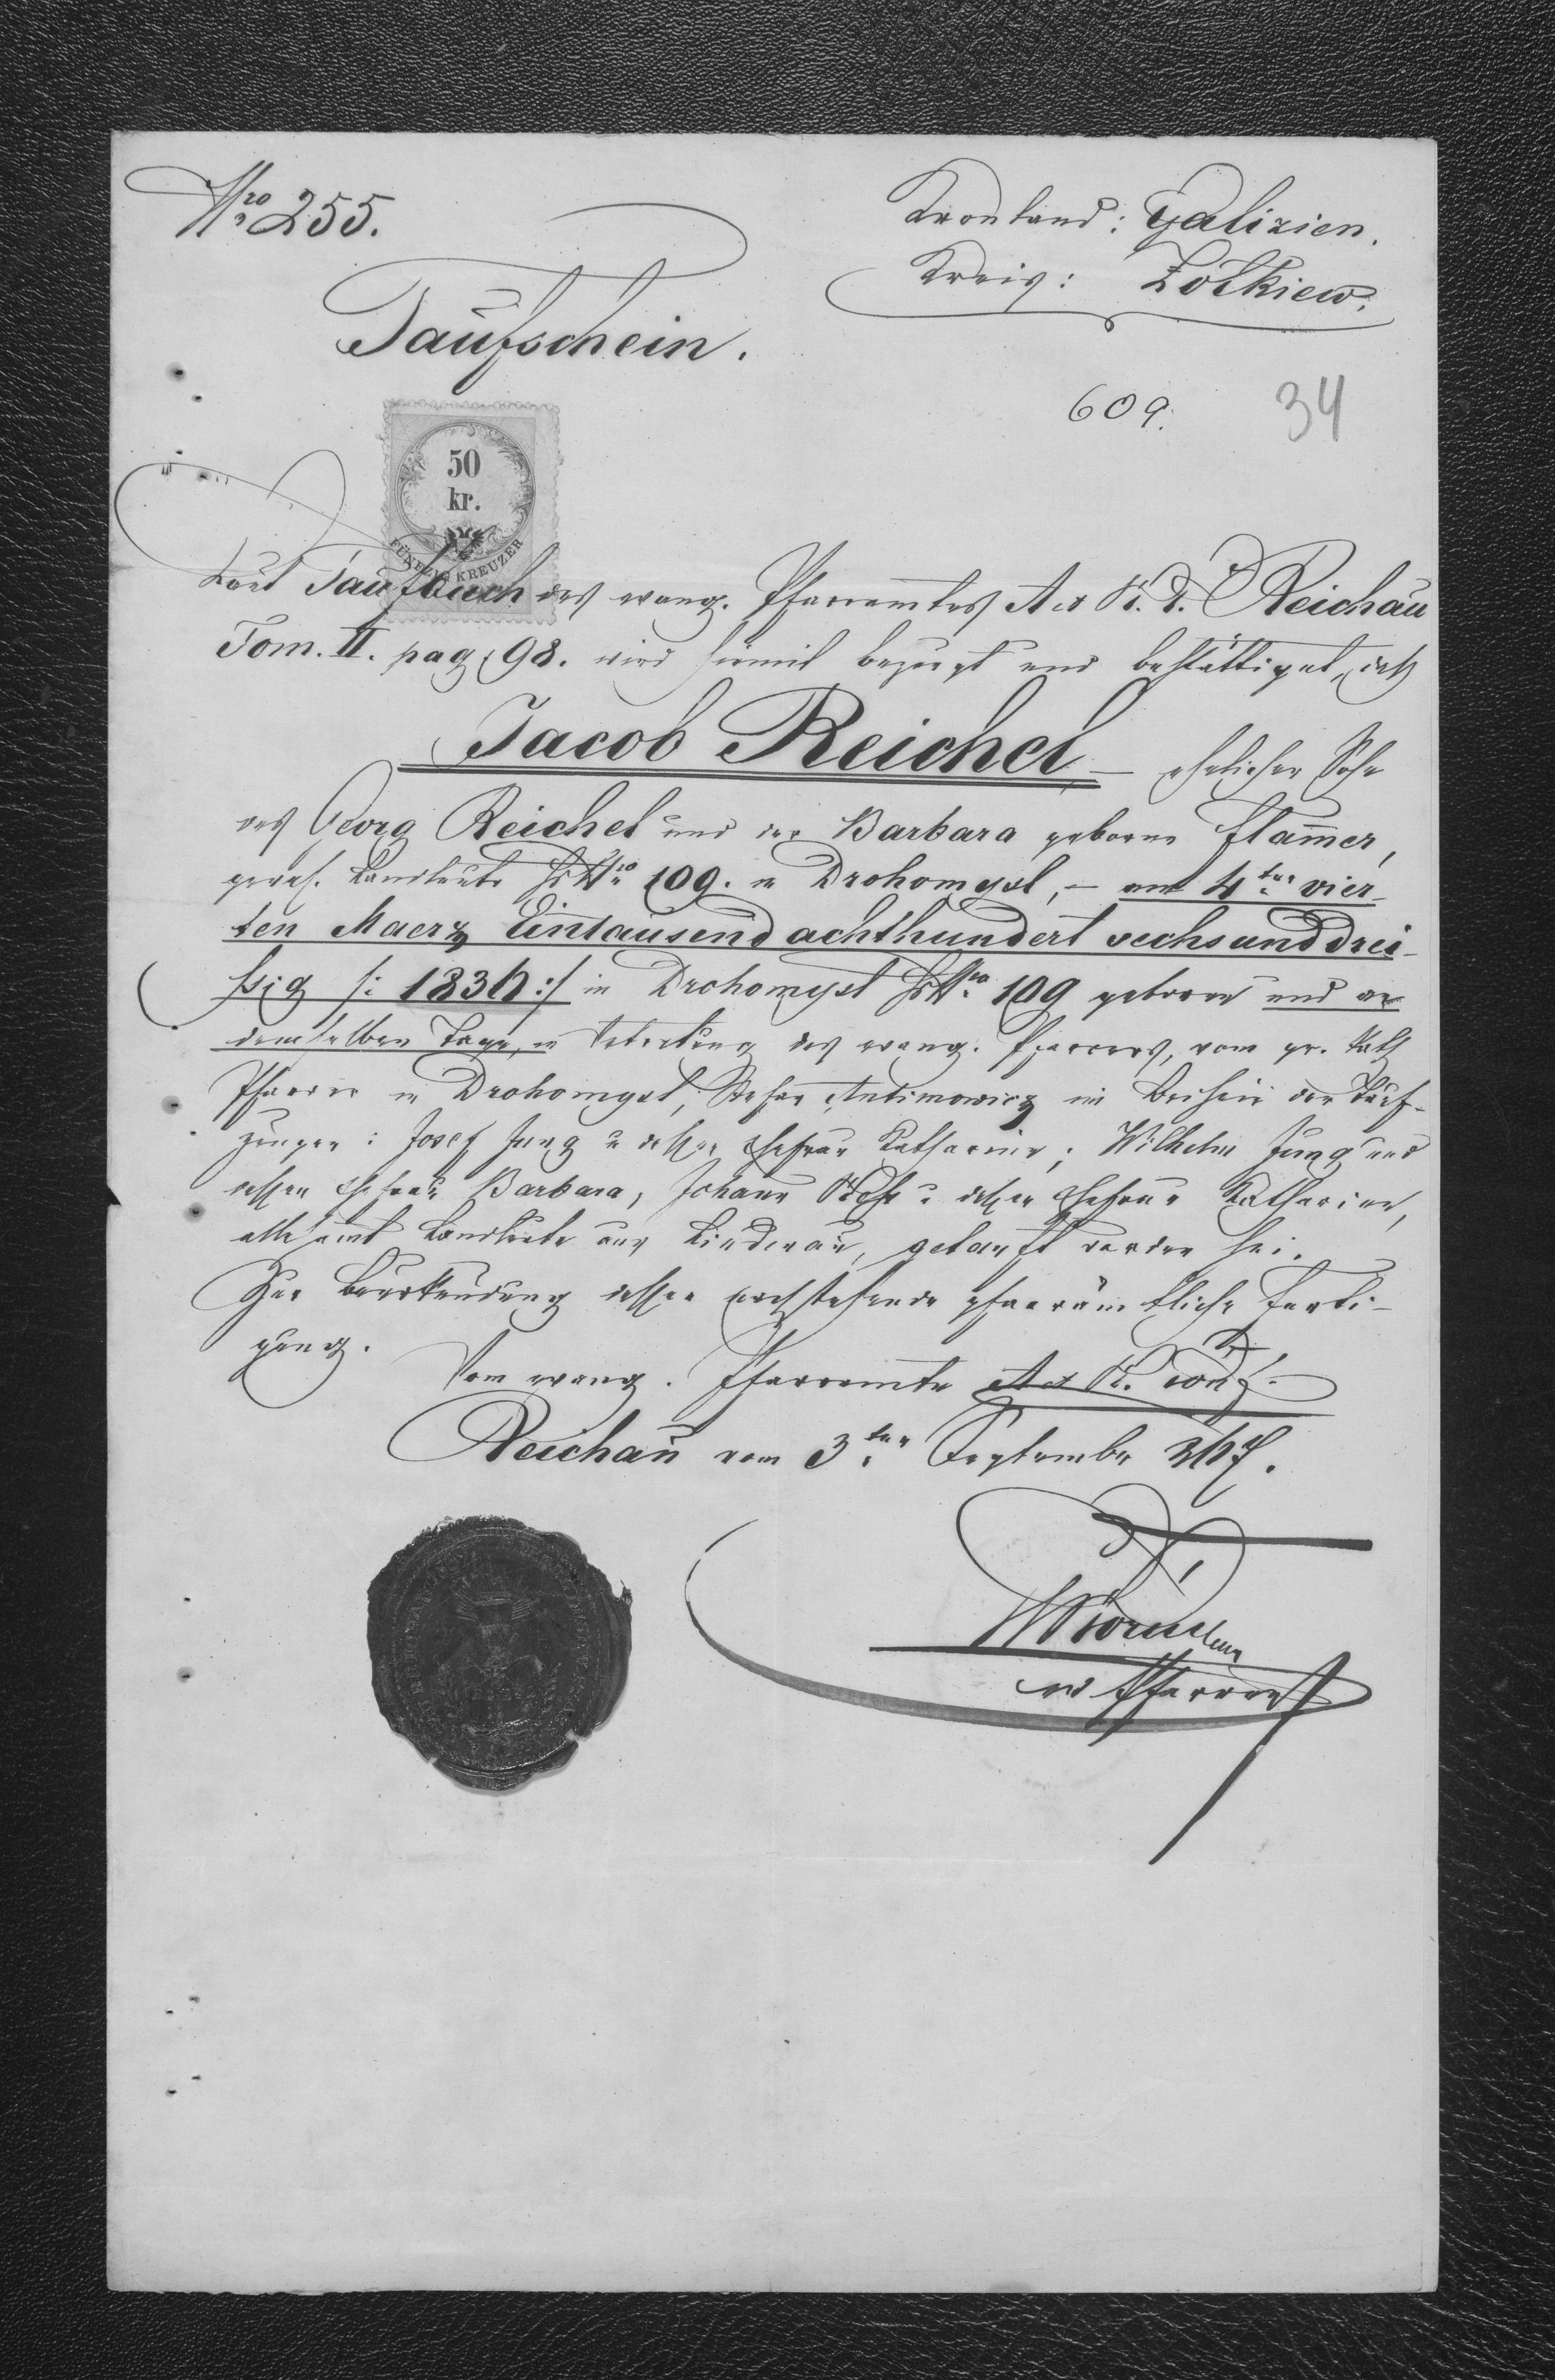 Nro 255.
Kronland: Galizien.
Kreis: Zołkiew.
Taufschein.
609. 34
50
kr.
FÜNFZIG KREUZER
Laut Taufbuch des evang. Pfarramtes A. et H. C. Reichau
Tom. II. pag. 98. wird hiemit bezeugt und bestättiget, daß
Jacob Reichel – ehelicher Sohn
des Georg Reichel und der Barbara geborne Flam̅er,
Landleute HsNro 109. in Drohomysl, – am 4ten vier-
ten Maerz Eintausend achthundert sechsunddrei-
ßig /: 1836 :/ in Drohomysl HsNro 109 geboren und an
demselben Tage, in Vertretung des evang. Pfarrers, vom gr. kath
Pfarrer in Drohomysl, Stefan Antimowicz im Beisein der Tauf-
zeugen: Josef Jung u dessen Ehefrau Katharina; Wilhelm Jung und
dessen Ehefrau Barbara, Johann u. dessen Ehefrau Katharina,
allesamt Landleute aus Lindenau, getauft worden sei.
Zur Beurkundung dessen pfarrämtliche Ferti-
gung.
Vom evang. Pfarramte A et H. Conf.
Reichau vom 3ten September 867.
Pfarrer